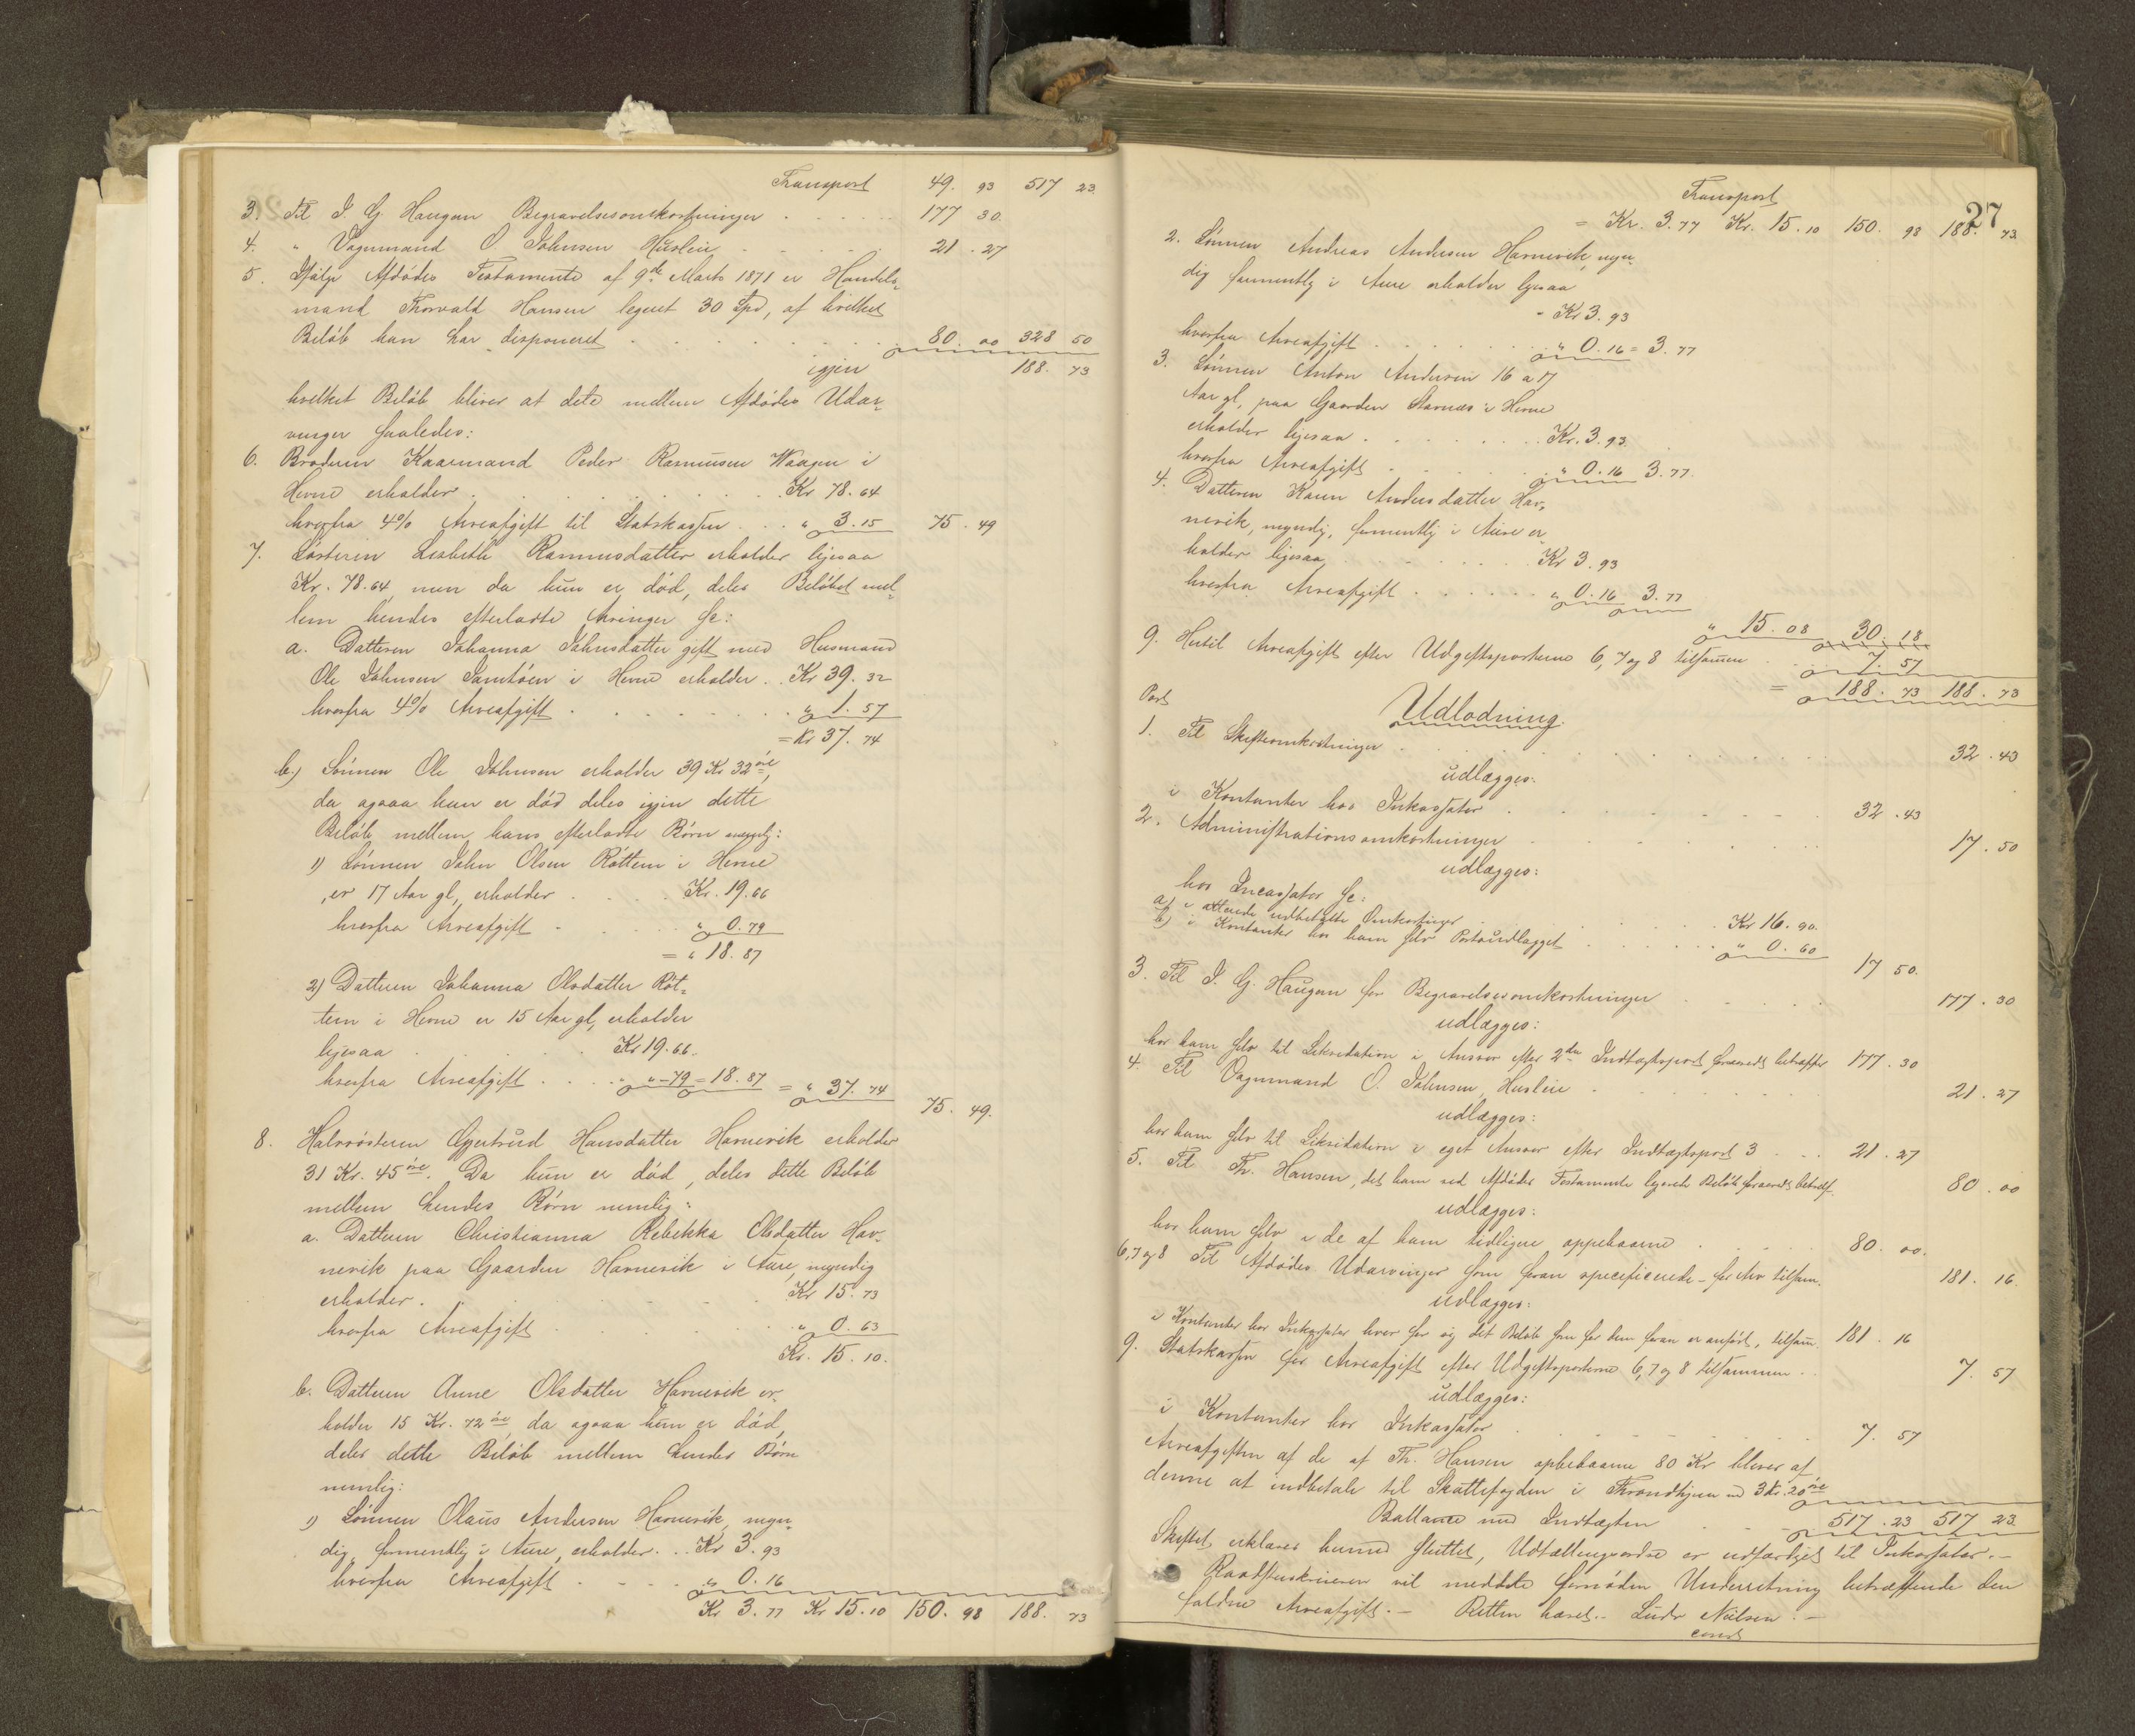 Transport 49. 93 517 23.
3. Til I. G. Haugan Begravelsesomkostninger . . . . 177 30.
4. " Vognmand O. Johnsen Husleie . . . . 21. 27
5. Ifölge Afdödes Testamente af 9de Marts 1871 er Handels-
mand Thorvald Hansen legeret 30 Spd, af hvilket
Belöb han har disponeret . . . . 80. 00 328 50
igjen 188. 73
hvilket Belöb bliver at dele mellem Afdödes Udar-
vinger saaledes:
6. Broderen Kaarmand Peder Rasmussen Waagen i
Hevne erholder . . . . Kr 78.64
hvorfra 4% Arveafgift til Statskassen . . " 3.15 75.49
7. Lisbeth Rasmusdatter erholder ligesaa
Kr. 78.64 men da hun er död, deles Belöbet mel-
lem hendes efterladte Arvinger se:
a. Datteren Johanna Johnsdatter gift med Husmand
Ole Johnsen i Hevne erholder . . Kr 39.32
hvorfra 4% Arveafgift . . . . " 1.57
= Kr 37.74
b.) Sönnen Ole Johnsen erholder 39 Kr 32 öre,
da ogsaa han er död deles igjen dette
Belöb mellem hans efterladte Börn
1) Sönnen John Olsen Röttem i Hevne
er 17 Aar gl, erholder . . . Kr. 19.66
hvorfra Arveafgift . . . " 0.79
= " 18.87
2) Datteren Johanna Olsdatter Röt-
tem i Hevne er 15 Aar gl, erholder
ligesaa . . . Kr 19.66.
hvorfra Arveafgift . . . " -79 = 18.87 = " 37.74
75. 49.
8. Halvsösteren Gjertrud Hansdatter Havnevik erholder
31 Kr. 45 öre. Da hun er död, deles dette Belöb
mellem hendes Börn nemlig:
a. Datteren Christianna Rebekka Olsdatter Hav-
nevik paa Gaarden Havnevik i Aure, myndig
erholder . . . Kr 15.73
hvorfra Arveafgift . . . " 0.63
Kr. 15.10.
b. Datteren Anne Olsdatter Havnevik er-
holder 15 Kr. 72 öre, da ogsaa hun er död,
deles dette Belöb mellem hendes Börn
nemlig:
1) Sönnen Olaus Andersen Havnevik, myn-
dig, formentlig i Aure, erholder . . Kr 3.93
hvorfra Arveafgift . . . " 0.16
Kr 3.77 Kr 15.10 150.98 188. 73
27
Transport
= Kr. 3.77 Kr. 15.10 150. 98 188. 73
2. Sönnen Andreas Andersen Havnevik, myn-
dig formentlig i Aure erholder ligesaa
Kr 3.93
hvorfra Arveafgift . . . " 0.16 = 3.77
3. Sönnen Anton Andersen 16 a 17
Aar gl, paa Gaarden Stamnes i Hevne
erholder ligesaa . . . Kr. 3.93
hvorfra Arveafgift . . . " 0.16 3.77.
4. Datteren Karen Andersdatter Hav-
nevik, myndig, formentlig i Aure er-
holder ligesaa . . . Kr 3.93
hvorfra Arveafgift . . . " 0.16 3.77
" 15.08 30.18
9. Hertil Arveafgift efter Udgiftsposterne 6, 7 og 8 tilsammen . . 7.57
= 188. 73 188. 73
Post Udlodning.
1. Til Skifteomkostninger . . . 32.43
udlægges:
i Kontanter hos Inkassator . . . 32.43
2. Administrationsomkostninger . . . 17.50
udlægges:
hos Incassator se:
a) i udbetalte Omkostninger . . . Kr 16.90.
b) i Kontanter hos ham selv Portoudlægget . . . " 0.60 17 50.
3. Til I. G. Haugan for Begravelsesomkostninger . . . 177.30
udlægges:
hos ham selv til Likvidation i Ansvar efter 2den Indtægtspost forsaavidt betræffer 177.30
4. Til Vognmand O. Johnsen, Husleie . . . 21.27
udlægges:
hos ham selv til Likvidation i eget Ansvar efter Indtægtspost 3 . . . 21.27
5. Til Th. Hansen, det ham ved Afdödes Testamente legerede Belöb forsaavidt betræf. 80.00
udlægges:
hos ham selv i de af ham tidligere oppebaarne . . . 80.00.
6, 7 og 8 Til Afdödes Udarvinger som foran specificerede for Arv tilsam. 181.16.
udlægges:
i Kontanter hos Inkassator hver for sig det Belöb som for dem foran er anfört, tilsam. 181.16
9. Statskassen for Arveafgift efter Udgiftsposterne 6, 7 og 8 tilsammen . . 7.57
udlægges:
i Kontanter hos Inkassator . . . 7.57
Arveafgiften af de af Th. Hansen opbebaarne 80 Kr bliver af
denne at indbetale til Skattefogden i Throndhjem med 3 Kr. 20 öre
Ballance med Indtægten . . . 517.23 517 23.
Skiftet erklæres hermed sluttet, Udtællingsordre er udfærdiget til Inkassator.-
Raadstueskriveren vil meddele fornöden Underretning betræffende den
faldne Arveafgift.- Retten hævet.- Ludv Nielsen.-
const